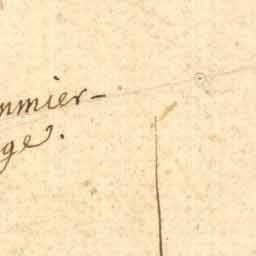 nmier-
ge.